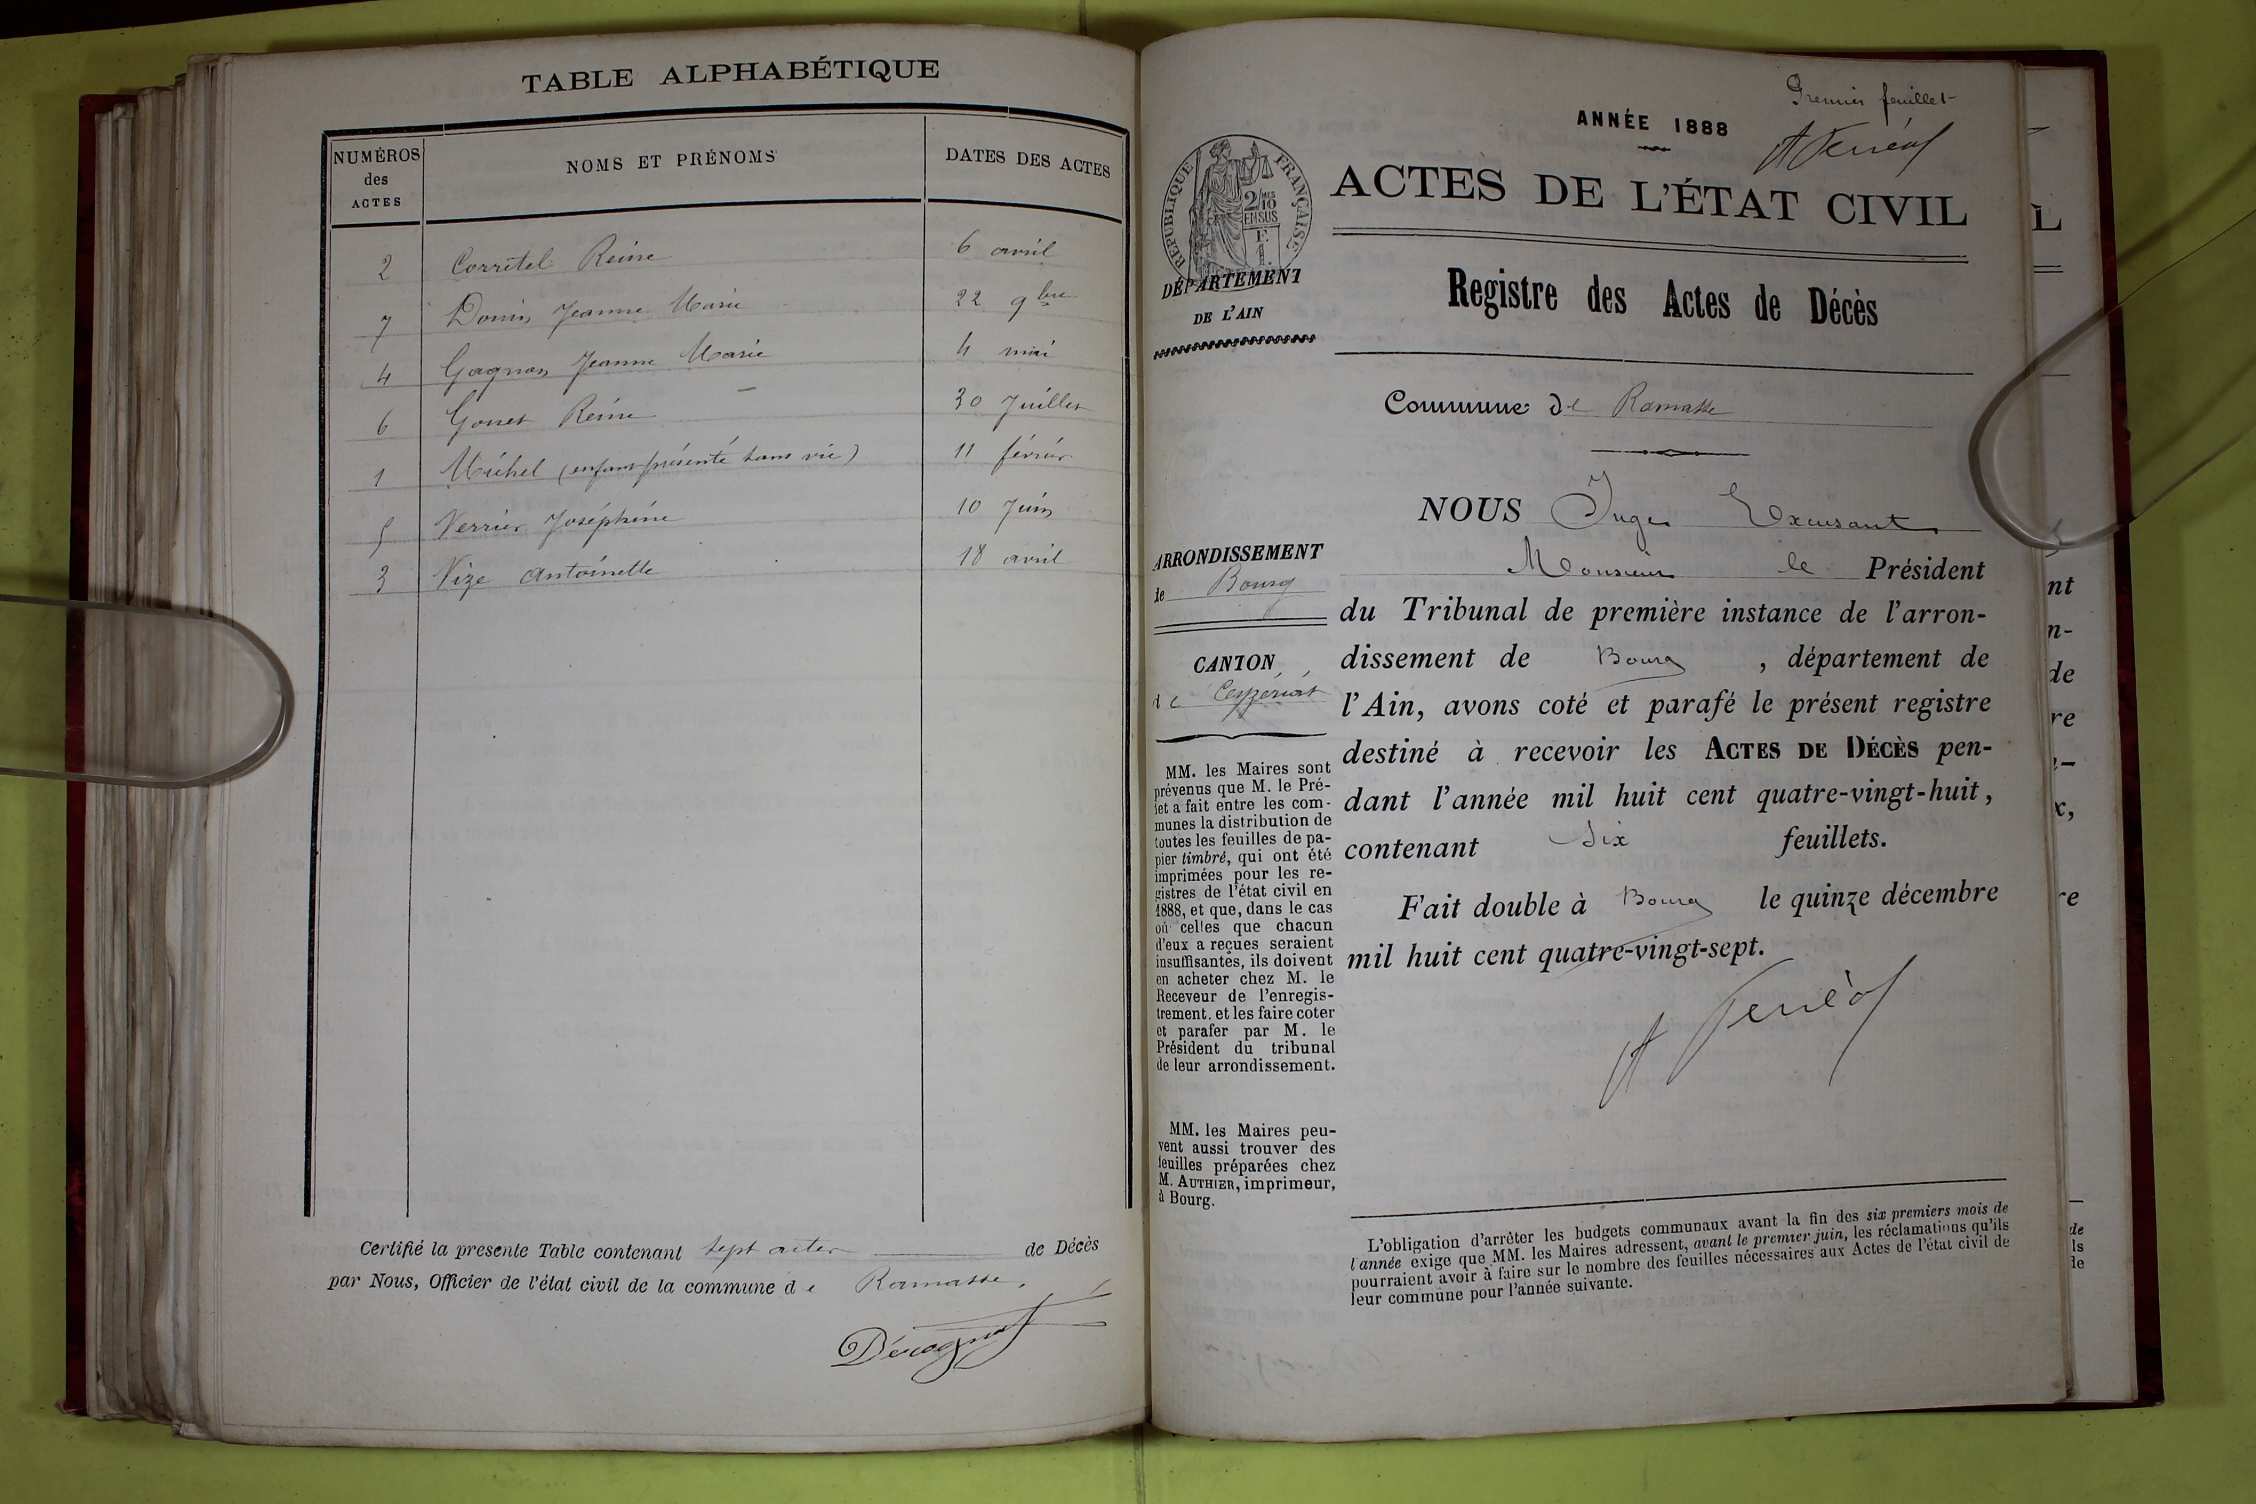 TABLE ALPHABÉTIQUE
NUMÉROS des ACTES
NOMS ET PRÉNOMS
DATES DES ACTES
2 Corretel Reine 6 avril
7 Jeanne Marie 22 9bre
4 Gagnon Jeanne Marie 4 mai
6 Gouet Reine 30 Juillet
1 Michel (enfant présenté sans vie) 11 février
5 Verrier Joséphine 10 Juin
3 Vize Antoinette 18 avril
Certifié la presente Table contenant sept actes de Décès
par Nous, Officier de l'état civil de la commune de Ramasse.
Premier feuillet
ANNÉE 1888
A Ferréol
RÉPUBLIQUE FRANÇAISE
2/10
EN SUS
ACTES DE L'ÉTAT CIVIL
DÉPARTEMENT
DE L'AIN
Registre des Actes de Décès
Commune de Ramasse
ARRONDISSEMENT
de Bourg
CANTON
de Ceyzériat
MM. les Maires sont
prévenus que M. le Pré-
fet a fait entre les com-
munes la distribution de
toutes les feuilles de pa-
pier timbré, qui ont été
imprimées pour les re-
gistres de l'état civil en
1888, et que, dans le cas
où celles que chacun
d'eux a reçues seraient
insuffisantes, ils doivent
en acheter chez M. le
Receveur de l'enregis-
trement, et les faire coter
et parafer par M. le
Président du tribunal
de leur arrondissement.
MM. les Maires peu-
vent aussi trouver des
feuilles préparées chez
M. AUTHIER, imprimeur,
à Bourg.
NOUS Juge Excusant
Monsieur le Président
du Tribunal de première instance de l'arron-
dissement de Bourg, département de
l'Ain, avons coté et parafé le présent registre
destiné à recevoir les ACTES DE DÉCÈS pen-
dant l'année mil huit cent quatre-vingt-huit,
contenant six feuillets.
Fait double à Bourg le quinze décembre
mil huit cent quatre-vingt-sept.
A Ferréol
L'obligation d'arrêter les budgets communaux avant la fin des six premiers mois de
l'année exige que MM. les Maires adressent, avant le premier juin, les réclamations qu'ils
pourraient avoir à faire sur le nombre des feuilles nécessaires aux Actes de l'état civil de
leur commune pour l'année suivante.